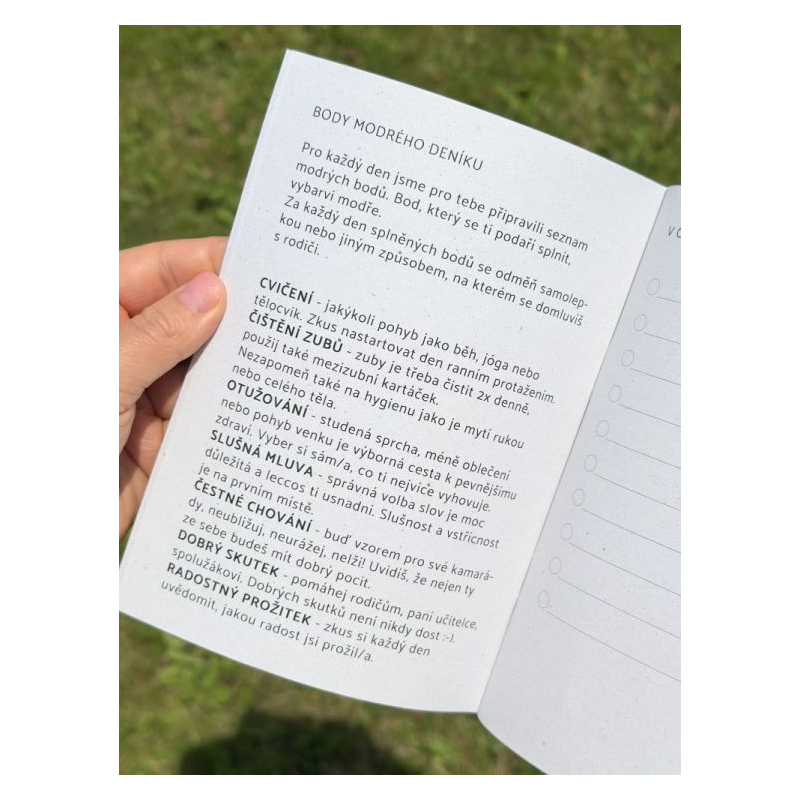 BODY MODRÉHO DENÍKU
Pro každý den jsme pro tebe připravili seznam
modrých bodů. Bod, který se ti podaří splnit,
vybarvi modře.
Za každý den splněných bodů se odměň samolep-
kou nebo jiným způsobem, na kterém se domluvíš
s rodiči.
CVIČENÍ - jakýkoli pohyb jako běh, jóga nebo
tělocvik. Zkus nastartovat den ranním protažením.
ČIŠTĚNÍ ZUBŮ - zuby je třeba čistit 2x denně,
použij také mezizubní kartáček.
Nezapomeň také na hygienu jako je mytí rukou
nebo celého těla.
OTUŽOVÁNÍ - studená sprcha, méně oblečení
nebo pohyb venku je výborná cesta k pevnějšímu
zdraví. Vyber si sám/a, co ti nejvíce vyhovuje.
SLUŠNÁ MLUVA - správná volba slov je moc
důležitá a leccos ti usnadní. Slušnost a vstřícnost
je na prvním místě.
ČESTNÉ CHOVÁNÍ - buď vzorem pro své kamará-
dy, neubližuj, neurážej, nelži! Uvidíš, že nejen ty
ze sebe budeš mít dobrý pocit.
DOBRÝ SKUTEK - pomáhej rodičům, paní učitelce,
spolužákovi. Dobrých skutků není nikdy dost :-).
RADOSTNÝ PROŽITEK - zkus si každý den
uvědomit, jakou radost jsi prožil/a.